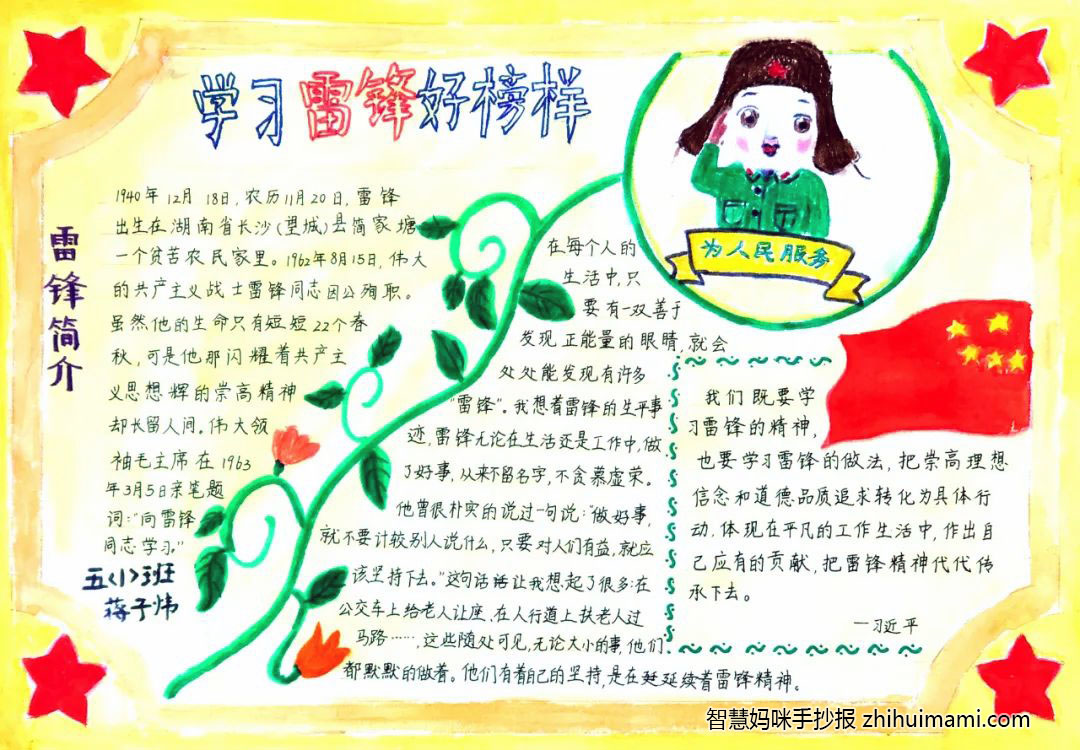 学习雷锋好榜样
为人民服务
雷锋简介
1940年12月18日,农历11月20日,雷锋
出生在湖南省长沙(望城)县简家塘
一个贫苦农民家里。1962年8月15日,伟大
的共产主义战士雷锋同志因公殉职。
虽然他的生命只有短短22个春
秋,可是他那闪耀着共产主
义思想辉的崇高精神
却长留人间。伟大领
袖毛主席在1963
年3月5日亲笔题
词:“向雷锋
同志学习。”
五<1>班
蒋子炜
在每个人的
生活中,只
要有一双善于
发现正能量的眼睛,就会
处处能发现有许多
“雷锋”。我想着雷锋的生平事
迹,雷锋无论在生活还是工作中,做
了好事,从来不留名字,不贪慕虚荣。
他曾很朴实的说过一句说:“做好事,
就不要计较别人说什么,只要对人们有益,就应
该坚持下去。”这句话让我想起了很多:在
公交车上给老人让座,在人行道上扶老人过
马路……,这些随处可见,无论大小的事,他们
都默默的做着。他们有着自己的坚持,是在延延续着雷锋精神。
我们既要学
习雷锋的精神,
也要学习雷锋的做法,把崇高理想
信念和道德品质追求转化为具体行
动,体现在平凡的工作生活中,作出自
己应有的贡献,把雷锋精神代代传
承下去。
—习近平
智慧妈咪手抄报 zhihuimami.com